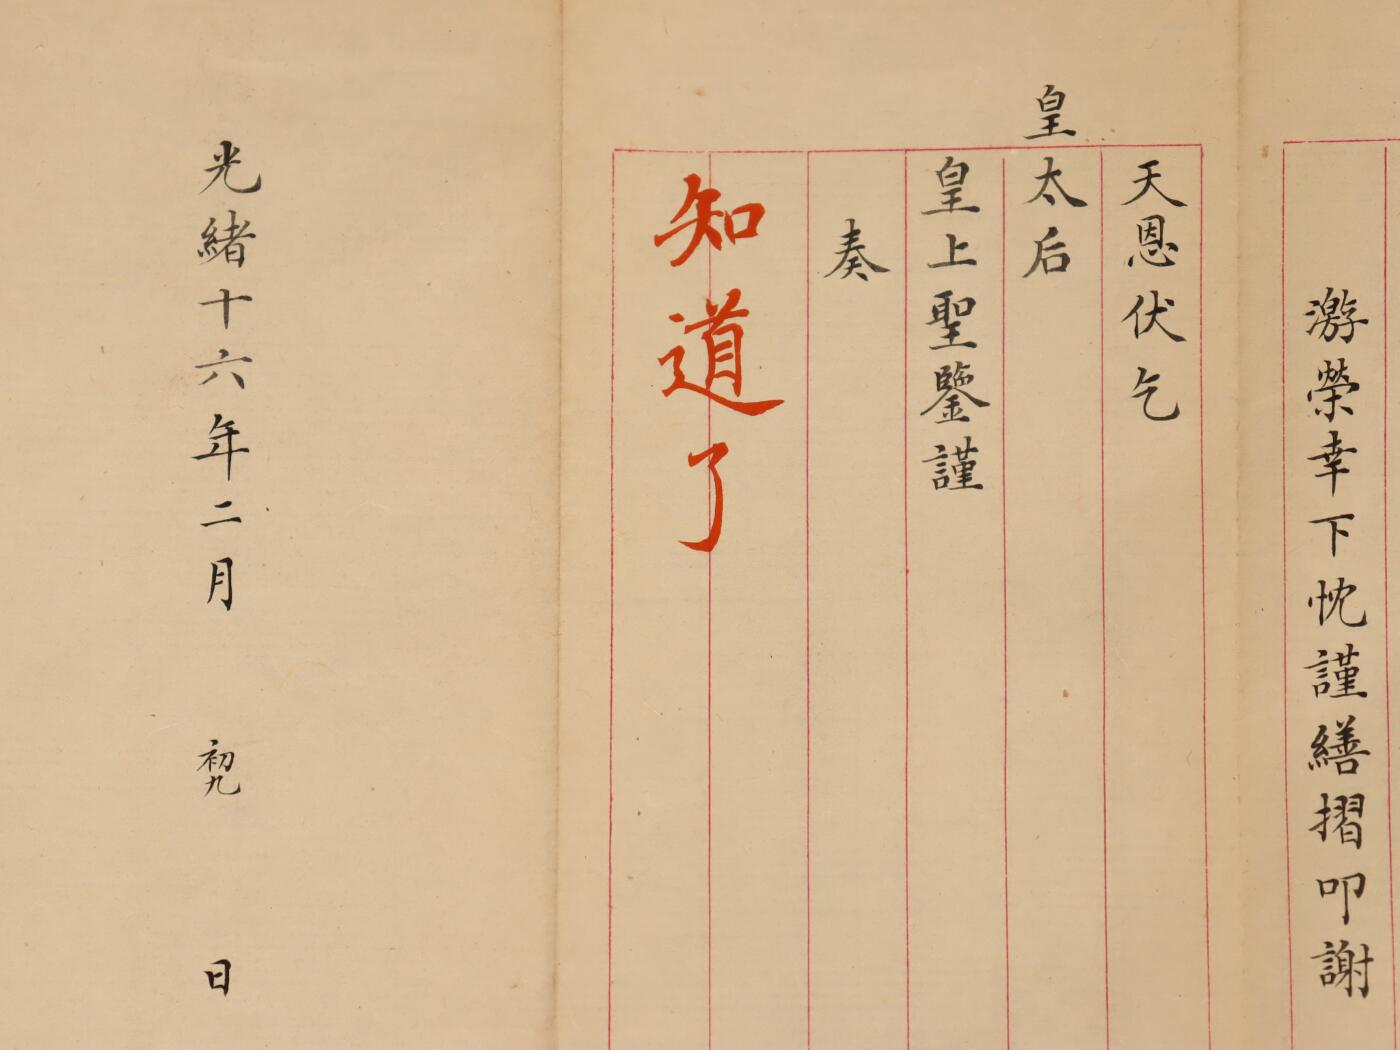 激榮幸下忱謹繕摺叩謝
天恩伏乞
皇太后
皇上聖鑒謹
奏
知道了
光緒十六年二月初九日